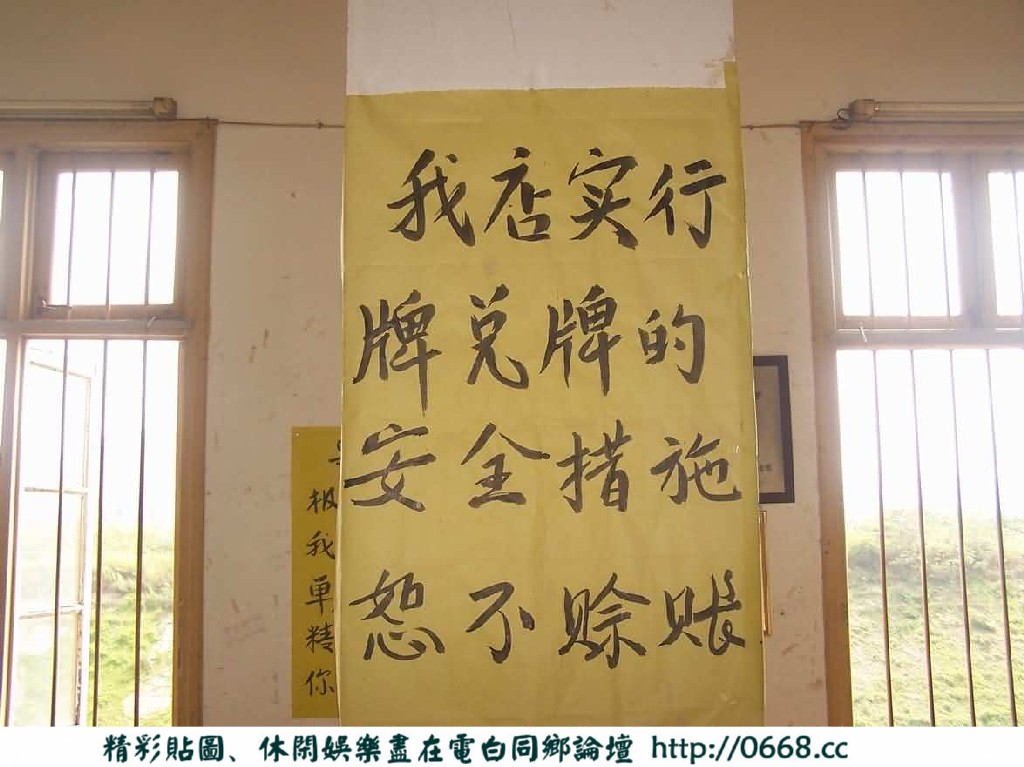 我店实行
牌兑牌的
安全措施
恕不赊账
极我单精你
精彩貼圖、休閑娛樂盡在電白同鄉論壇 http://0668.cc